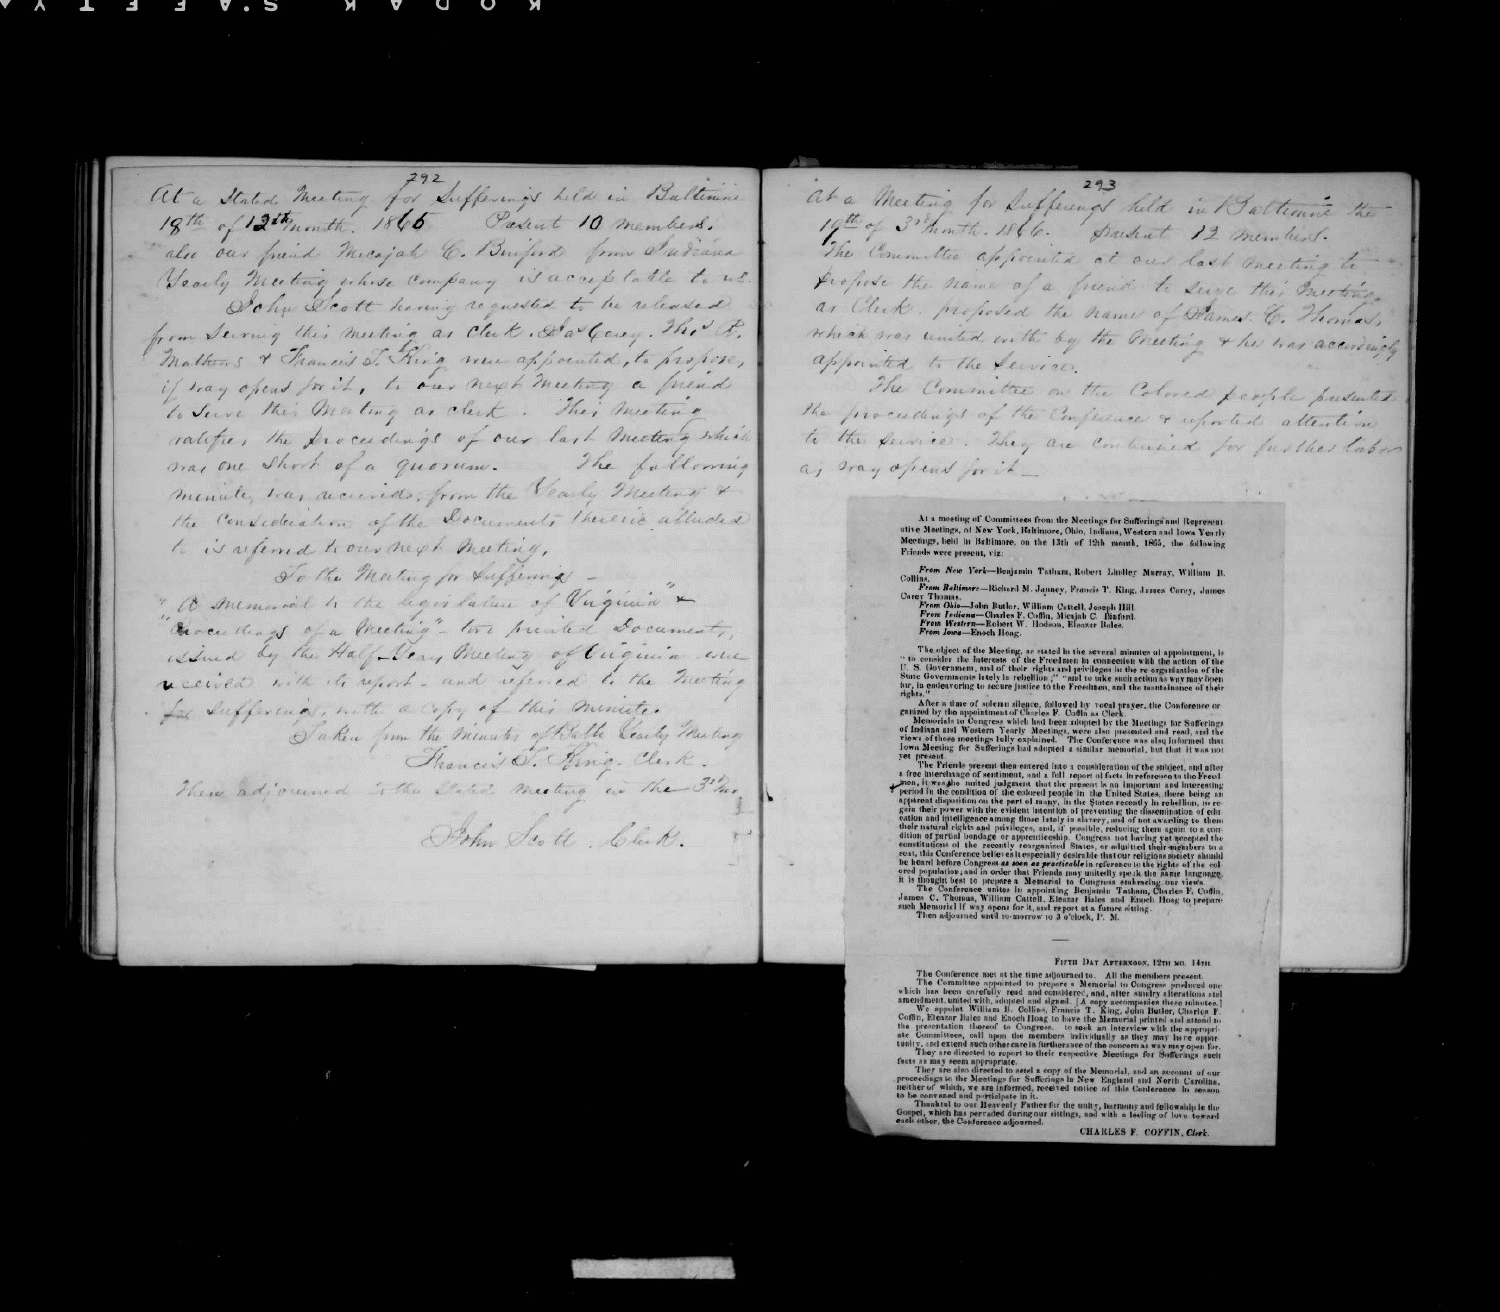 KODAK SAFETY
292
At a Stated Meeting for Sufferings held in Baltimore
18th of 12th month. 1865 Present 10 members.
also our friend Micajah C. Binford from Indiana
Yearly Meeting whose company is acceptable to us.
John Scott having requested to be released
from serving this meeting as Clerk. Jas Carey. Thos R.
Mathews & Francis T. King were appointed, to propose,
if way opens for it, to our next Meeting a friend
to serve this Meeting as clerk. This Meeting
ratifies the proceedings of our last Meeting which
was one short of a quorum. The following
minute, was received, from the Yearly Meeting &
the consideration of the Documents therein alluded
to is referred to our next Meeting.
To the Meeting for Sufferings -
"A memorial to the legislature of Virginia" &
"Proceedings of a Meeting" - two printed Documents,
issued by the Half-Year Meeting of Virginia were
received with its report - and referred to the Meeting
for Sufferings, with a copy of this minute.
Taken from the Minutes of Balto Yearly Meeting
Francis T. King. Clerk.
Then adjourned to the Stated meeting in the 3rd mo.
John Scott. Clerk.
293
At a Meeting for Sufferings held in Baltimore the
19th of 3rd month. 1866. Present 12 members.
The Committee appointed at our last meeting to
propose the name of a friend to serve this Meeting
as Clerk. proposed the name of James C. Thomas,
which was united with by the Meeting & he was accordingly
appointed to the Service.
The Committee on the Colored people presented
the proceedings of the Conference & reported attention
to the service. They are continued for further labor
as way opens for it —
At a meeting of Committees from the Meetings for Sufferings and Represent-
ative Meetings, of New York, Baltimore, Ohio, Indiana, Western and Iowa Yearly
Meetings, held in Baltimore, on the 13th of 12th month, 1865, the following
Friends were present, viz:
From New York—Benjamin Tatham, Robert Lindley Murray, William B.
Collins.
From Baltimore—Richard M. Janney, Francis T. King, James Carey, James
Carey Thomas.
From Ohio—John Butler, William Cattell, Joseph Hill.
From Indiana—Charles F. Coffin, Micajah C. Binford.
From Western—Robert W. Hodson, Eleazar Bales.
From Iowa—Enoch Hoag.
The object of the Meeting, as stated in the several minutes of appointment, is
"to consider the interests of the Freedmen in connection with the action of the
U. S. Government, and of their rights and privileges in the re-organization of the
State Governments lately in rebellion;" "and to take such action as way may open
for, in endeavoring to secure justice to the Freedmen, and the maintainance of their
rights."
After a time of solemn silence, followed by vocal prayer, the Conference or-
ganized by the appointment of Charles F. Coffin as Clerk.
Memorials to Congress which had been adopted by the Meetings for Sufferings
of Indiana and Western Yearly Meetings, were also presented and read, and the
views of those meetings fully explained. The Conference was also informed that
Iowa Meeting for Sufferings had adopted a similar memorial, but that it was not
yet present.
The Friends present then entered into a consideration of the subject, and after
a free interchange of sentiment, and a full report of facts in reference to the Freed-
men, it was the united judgment that the present is an important and interesting
period in the condition of the colored people in the United States, there being an
apparent disposition on the part of many, in the States recently in rebellion, to re-
gain their power with the evident intention of preventing the dissemination of edu-
cation and intelligence among those lately in slavery, and of not awarding to them
their natural rights and privileges, and, if possible, reducing them again to a con-
dition of partial bondage or apprenticeship. Congress not having yet accepted the
constitutions of the recently reorganized States, or admitted their members to a
seat, this Conference believes it especially desirable that our religious society should
be heard before Congress as soon as practicable in reference to the rights of the col-
ored population, and in order that Friends may unitedly speak the same language,
it is thought best to prepare a Memorial to Congress embracing our views.
The Conference unites in appointing Benjamin Tatham, Charles F. Coffin,
James C. Thomas, William Cattell, Eleazar Bales and Enoch Hoag to prepare
such Memorial if way opens for it, and report at a future sitting.
Then adjourned until to-morrow to 3 o'clock, P. M.
FIFTH DAY AFTERNOON, 12TH MO. 14TH.
The Conference met at the time adjourned to. All the members present.
The Committee appointed to prepare a Memorial to Congress produced one
which has been carefully read and considered, and, after sundry alterations and
amendment, united with, adopted and signed. [A copy accompanies these minutes.]
We appoint William B. Collins, Francis T. King, John Butler, Charles F.
Coffin, Eleazar Bales and Enoch Hoag to have the Memorial printed and attend to
the presentation thereof to Congress, to seek an interview with the appropri-
ate Committees, call upon the members individually as they may have oppor-
tunity, and extend such other care in furtherance of the concern as way may open for.
They are directed to report to their respective Meetings for Sufferings such
facts as may seem appropriate.
They are also directed to send a copy of the Memorial, and an account of our
proceedings to the Meetings for Sufferings in New England and North Carolina,
neither of which, we are informed, received notice of this Conference in season
to be convened and participate in it.
Thankful to our Heavenly Father for the unity, harmony and fellowship in the
Gospel, which has pervaded during our sittings, and with a feeling of love toward
each other, the Conference adjourned.
CHARLES F. COFFIN, Clerk.